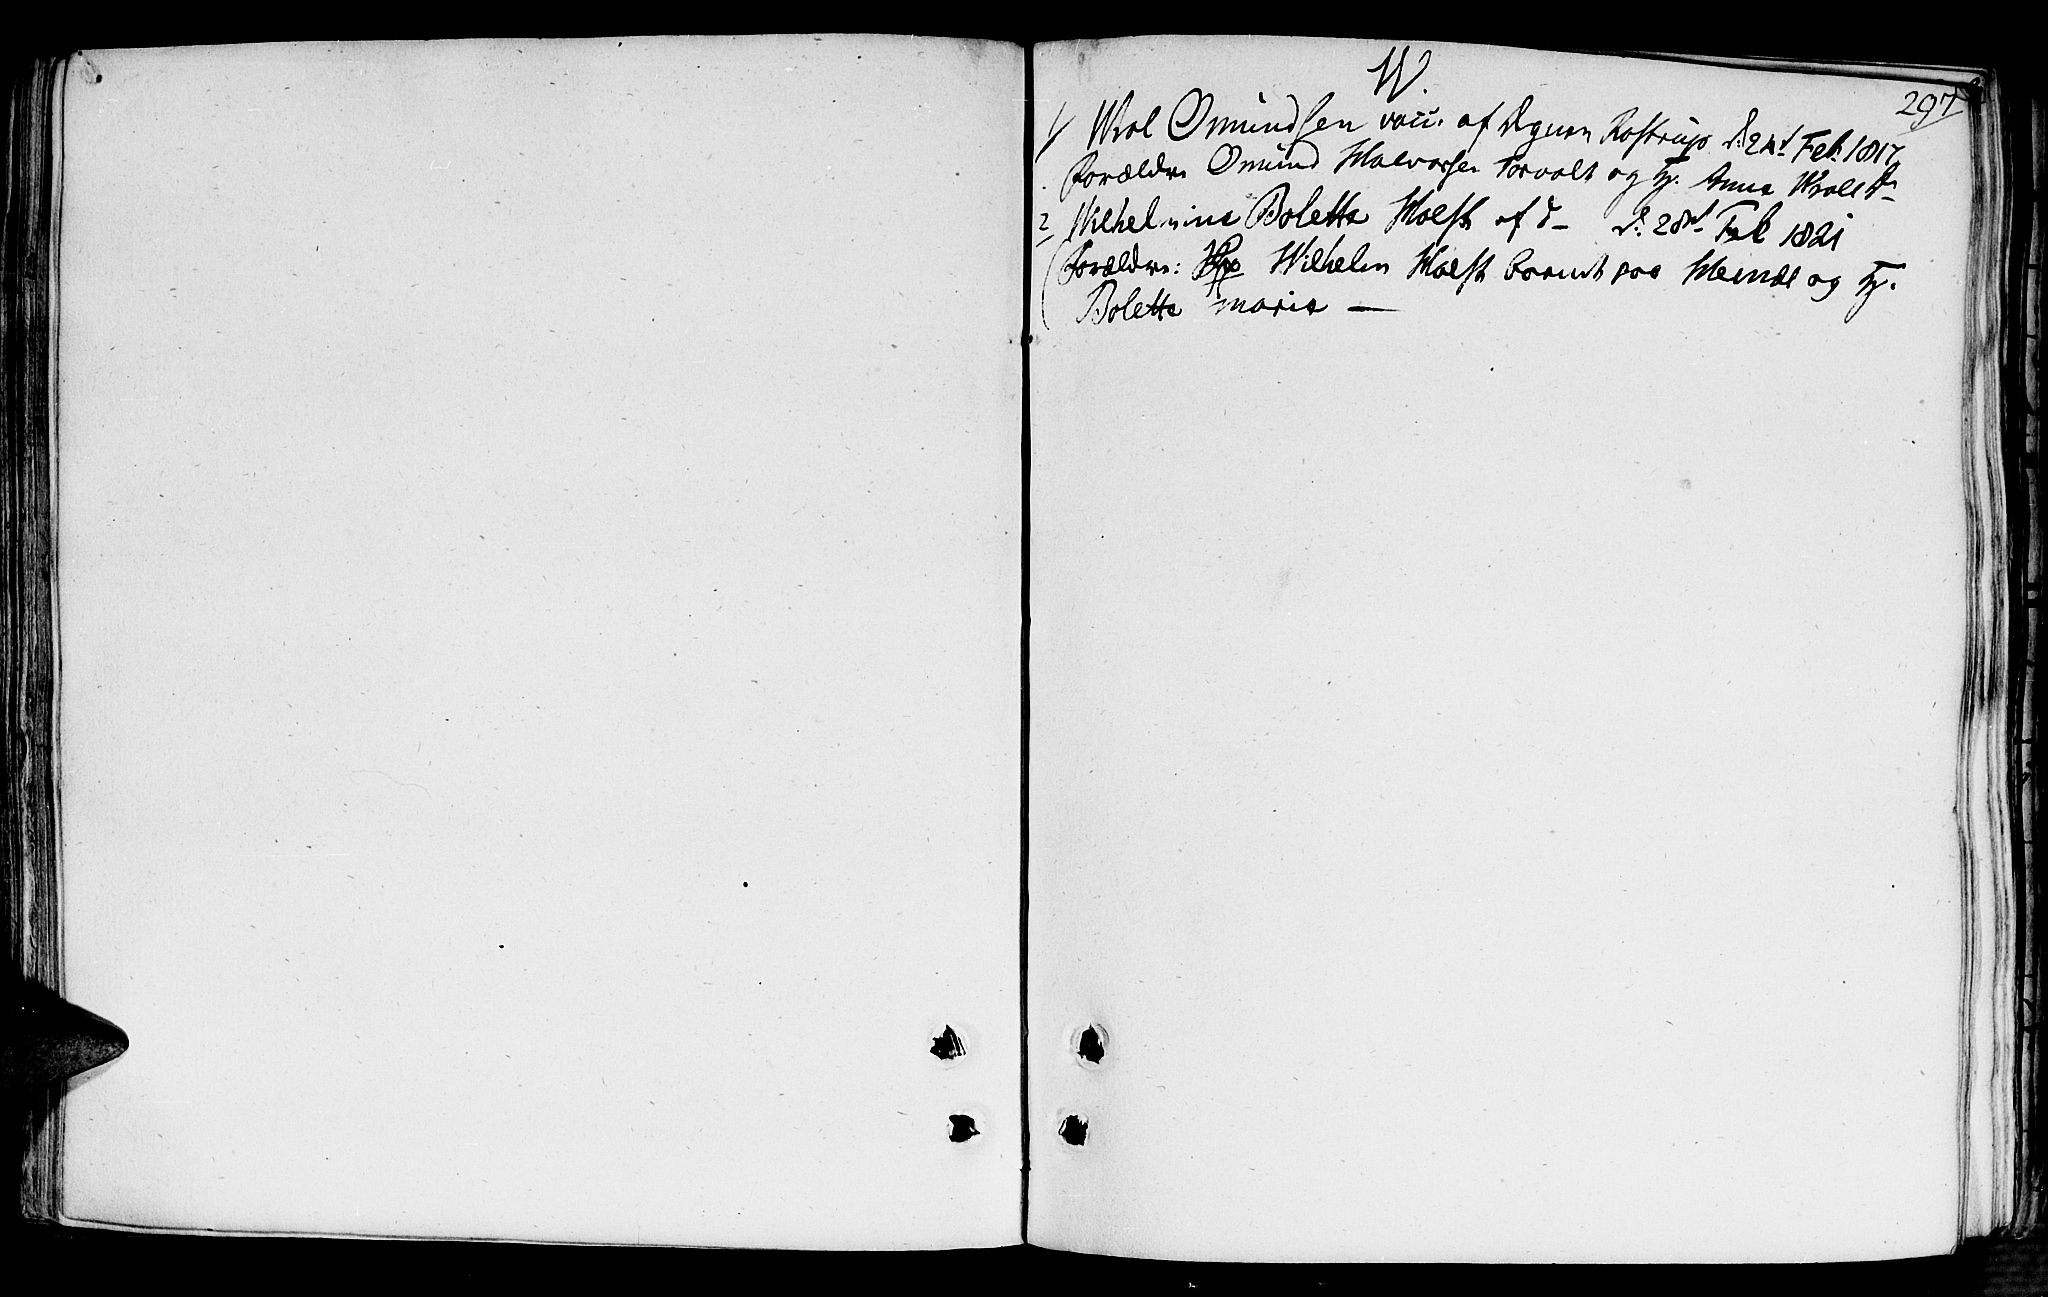 W.
297
1/ Wrol Omundsen vacc. af Degnen Rostrup d: 24d Feb 1817
Forældre Omund Halvorsen Torvolt og H. Anne Wrols Dr
2 Wilhelmine Bolette Holst af d– d: 28d Feb 1821
Forældre: Wilhelm Holst paa og H.
Bolette Maria —